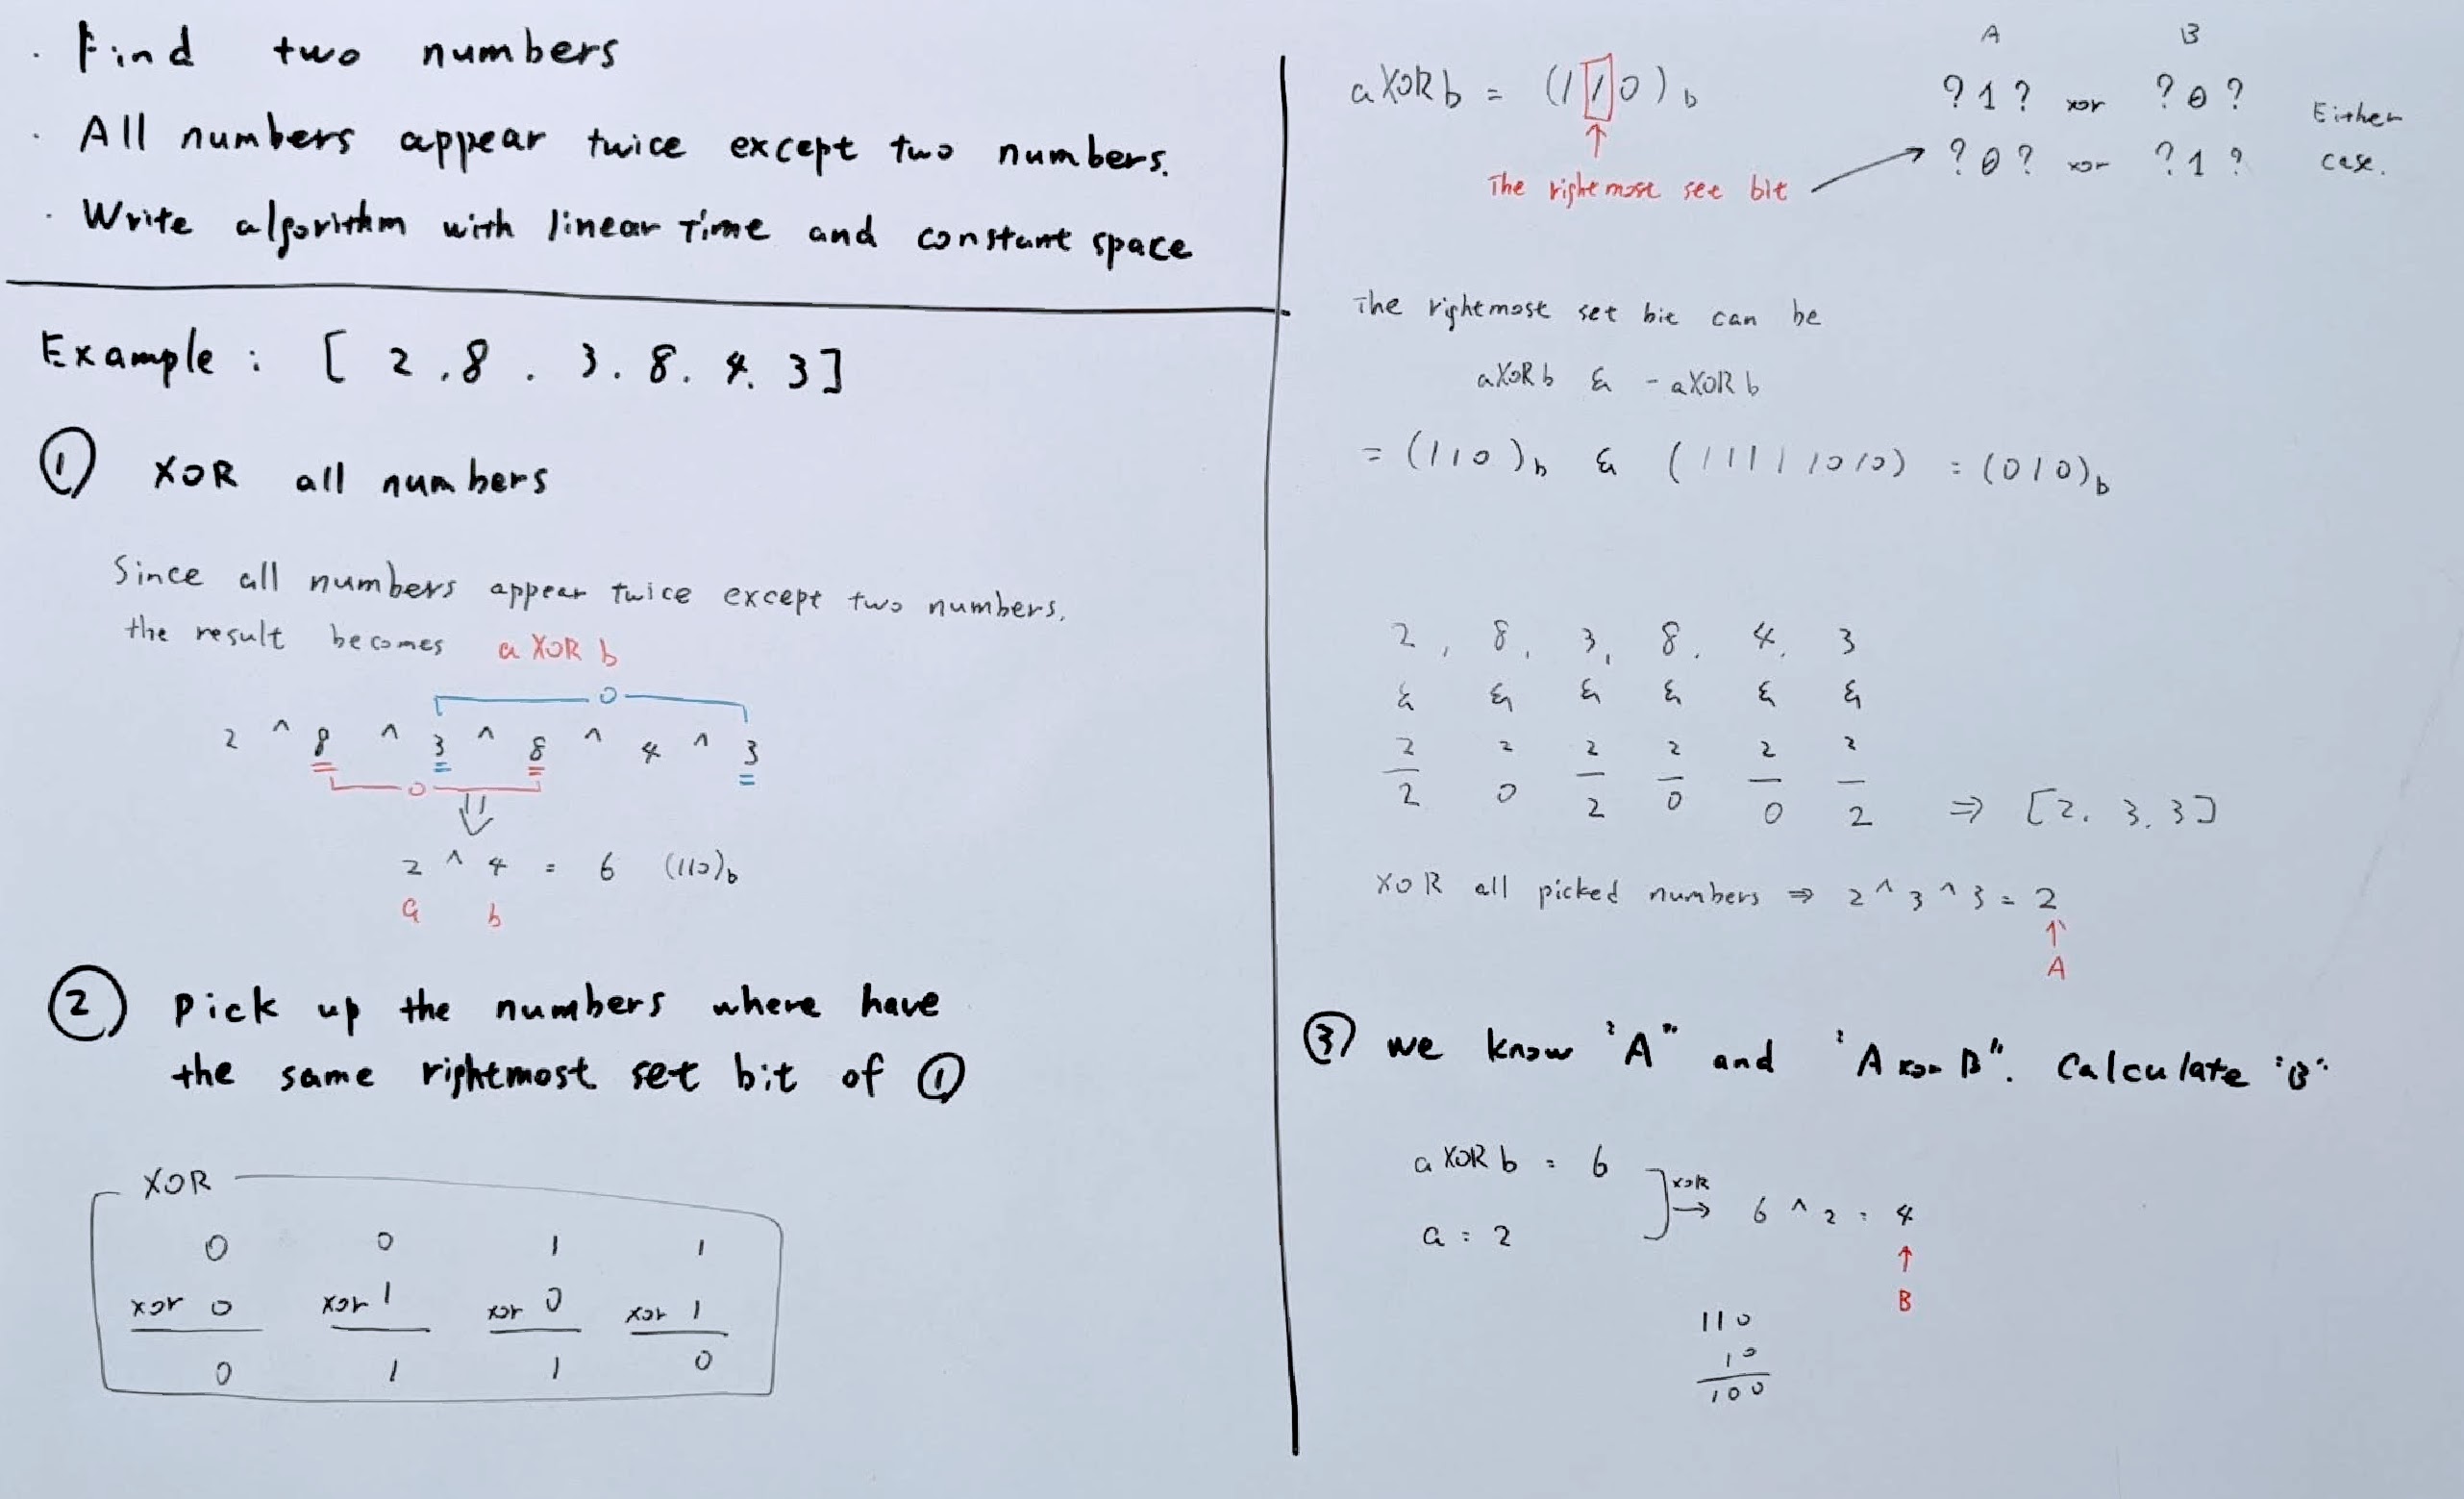 · Find two numbers
· All numbers appear twice except two numbers.
· Write algorithm with linear Time and constant space
Example : [ 2 , 8 . 3 . 8 . 4 . 3 ]
① XOR all numbers
Since all numbers appear twice except two numbers.
the result becomes a XOR b
0
2 ^ 8 ^ 3 ^ 8 ^ 4 ^ 3
0
2 ^ 4 = 6 (110)b
a b
② Pick up the numbers where have
the same rightmost set bit of ①
XOR
0 0 1 1
xor 0 xor 1 xor 0 xor 1
0 1 1 0
A B
a XOR b = (110)b
? 1 ? xor ? 0 ? Either
? 0 ? xor ? 1 ? case.
↑
The rightmost set bit →
The rightmost set bit can be
aXORb & - aXORb
= (110)b & (11111010) = (010)b
2 , 8 , 3 , 8 . 4 . 3
& & & & & &
2 2 2 2 2 2
2 0 2 0 0 2 ⇒ [2. 3. 3]
XOR all picked numbers ⇒ 2 ^ 3 ^ 3 = 2
↑
A
③ we know "A" and "A xor B". Calculate "B"
a XOR b = 6
xOR
→ 6 ^ 2 = 4
a = 2
↑
B
110
10
100